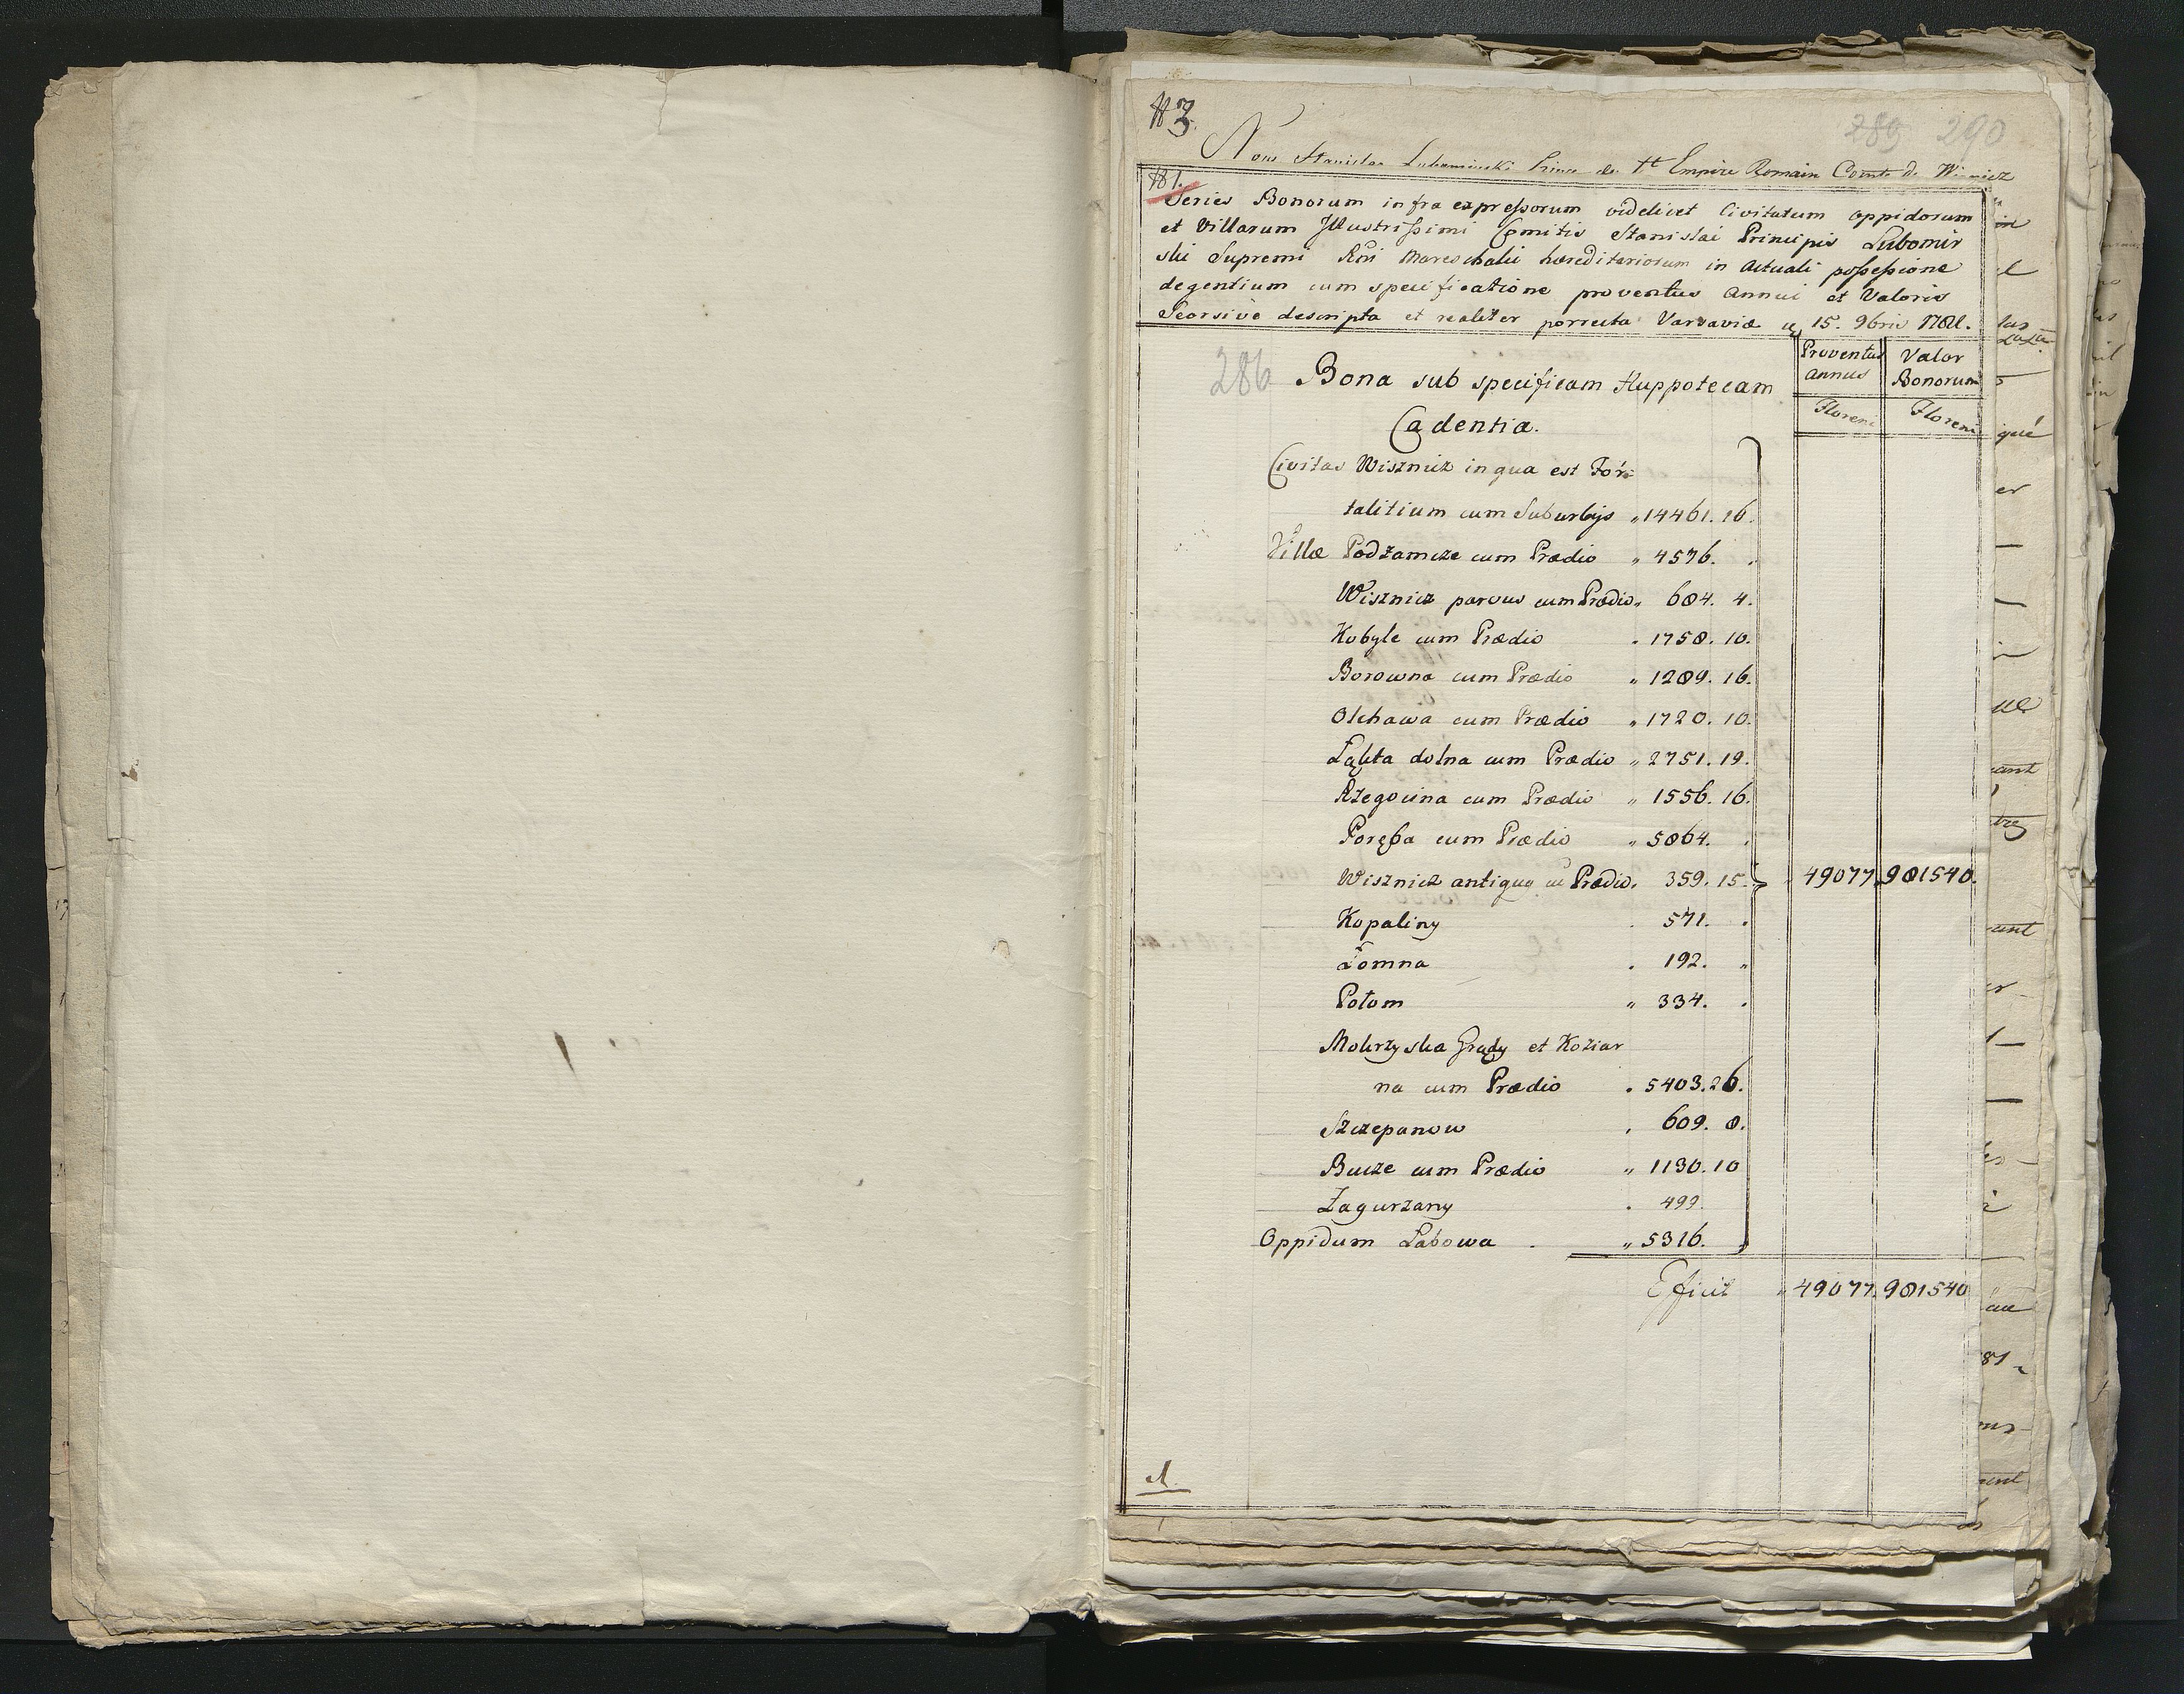 #3.
289 290
Nous Stanislas Lubomirski Prince de St Empire Romain Comte de Wisnicz
#1.
Series Bonorum infra expressorum videlicet Civitatum oppidorum
et Villarum Illustrissimi Comitis Stanislai Principis Lubomir
ski Supremi Rni Mareschalii hæreditariorum in Actuali possessione
degentium cum specificatione proventus Annui et Valoris
Seorsive descripta et realiter porrecta Varsaviæ 15. 9bris
286 Bona sub specificam Huppotecam
Cadentia.
Proventus annus
Valor Bonorum
Floreni Floreni
Civitas Wisznicz in qua est For=
talitium cum Suburbijs „ 14461. 16.
Villæ Podzamcze cum Prædio „ 4576. .
Wisznicz parvus cum Prædio „ 684. 4.
Kobyle cum Prædio . 1758. 10.
Borowna cum Prædio „ 1289. 16.
Olchawa cum Prædio „ 1720. 10.
Łąkta dolna cum Prædio „ 2751. 19.
Rzegocina cum Prædio „ 1556. 16.
Poręba cum Prædio „ 5864. .
Wisznicz antiquq cu Prædio. 359. 15. 49077. 981540.
Kopaliny . 571. .
Łomna . 192. „
Połom „ 334. .
Mokrzyska Grądy et Koziar
na cum Prædio . 5403. 26.
Szczepanow . 609. 8.
Bucze cum Prædio „ 1130. 10
Zagurzany . 499.
Oppidum Łabowa . „ 5316.
Efficit „ 49077. 981540
1.